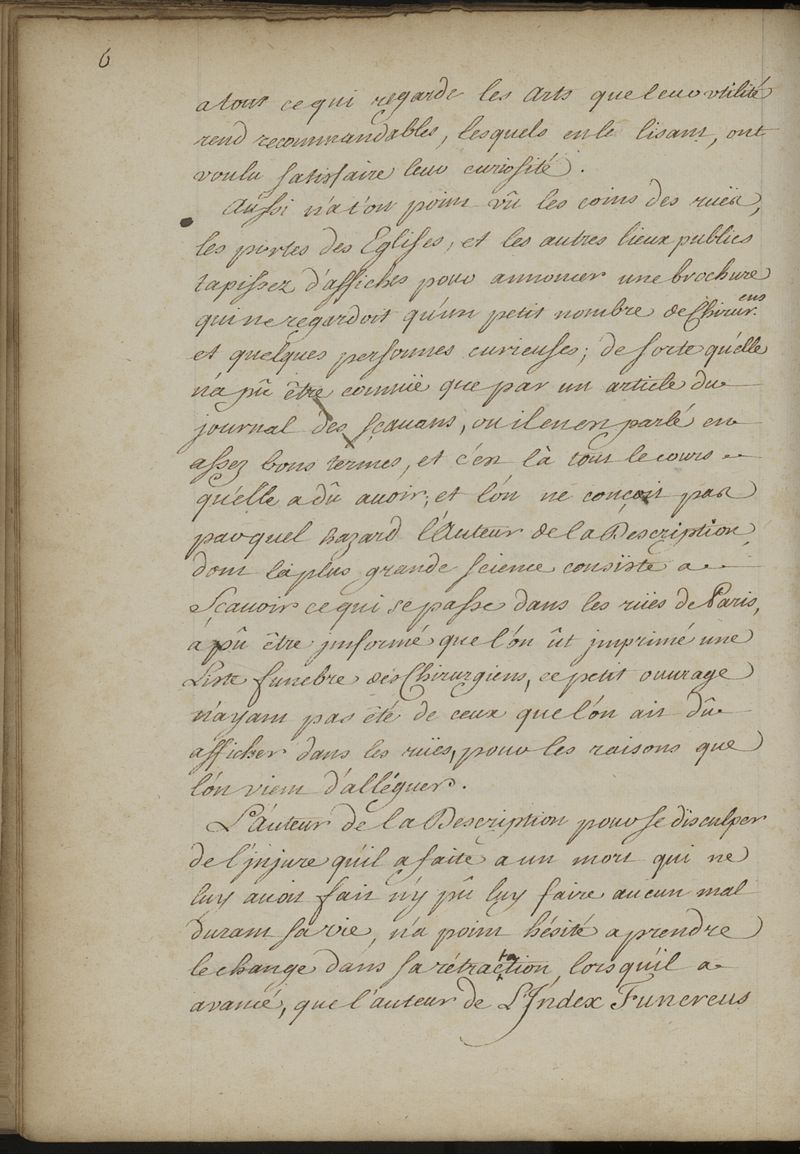 6
a tout ce qui regarde les Arts que leur vtilité
rend recommandables, lesquels en le lisant, ont
voulu satisfaire leur curiosité.
Aussi n'a t'on point vû les coins des ruës,
les portes des Eglises, et les autres lieux publics
tapissez d'affiches pour annoncer une brochure
qui ne regardoit qu'un petit nombre de Chirurg.ens
et quelques personnes curieuses; de sorte qu'elle
n'a pû être connuë que par un article du
journal des sçauans, ou il en est parlé en
assez bons termes, et c'est là tout le cours
qu'elle a dû auoir; et l'on ne conçoit pas
par quel hazard l'Auteur de la Description,
dont la plus grande science consiste a
sçauoir ce qui se passe dans les rües de Paris,
a pû être jnformé que l'on ût jmprimé une
Liste funebre des Chirurgiens, ce petit ouurage
n'ayant pas été de ceux que l'on ait dû
afficher dans les rües, pour les raisons que
l'on vient d'alléguer.
L'Auteur de la Description pour se disculper
de l'jnjure qu'il a faite a un mort qui ne
luy auoit fait n'y pû luy faire aucun mal
durant sa vie, n'a point hésité a prendre
le change dans sa rétractation, lorsqu'il a
avancé, que l'auteur de L'Jndex Funereus